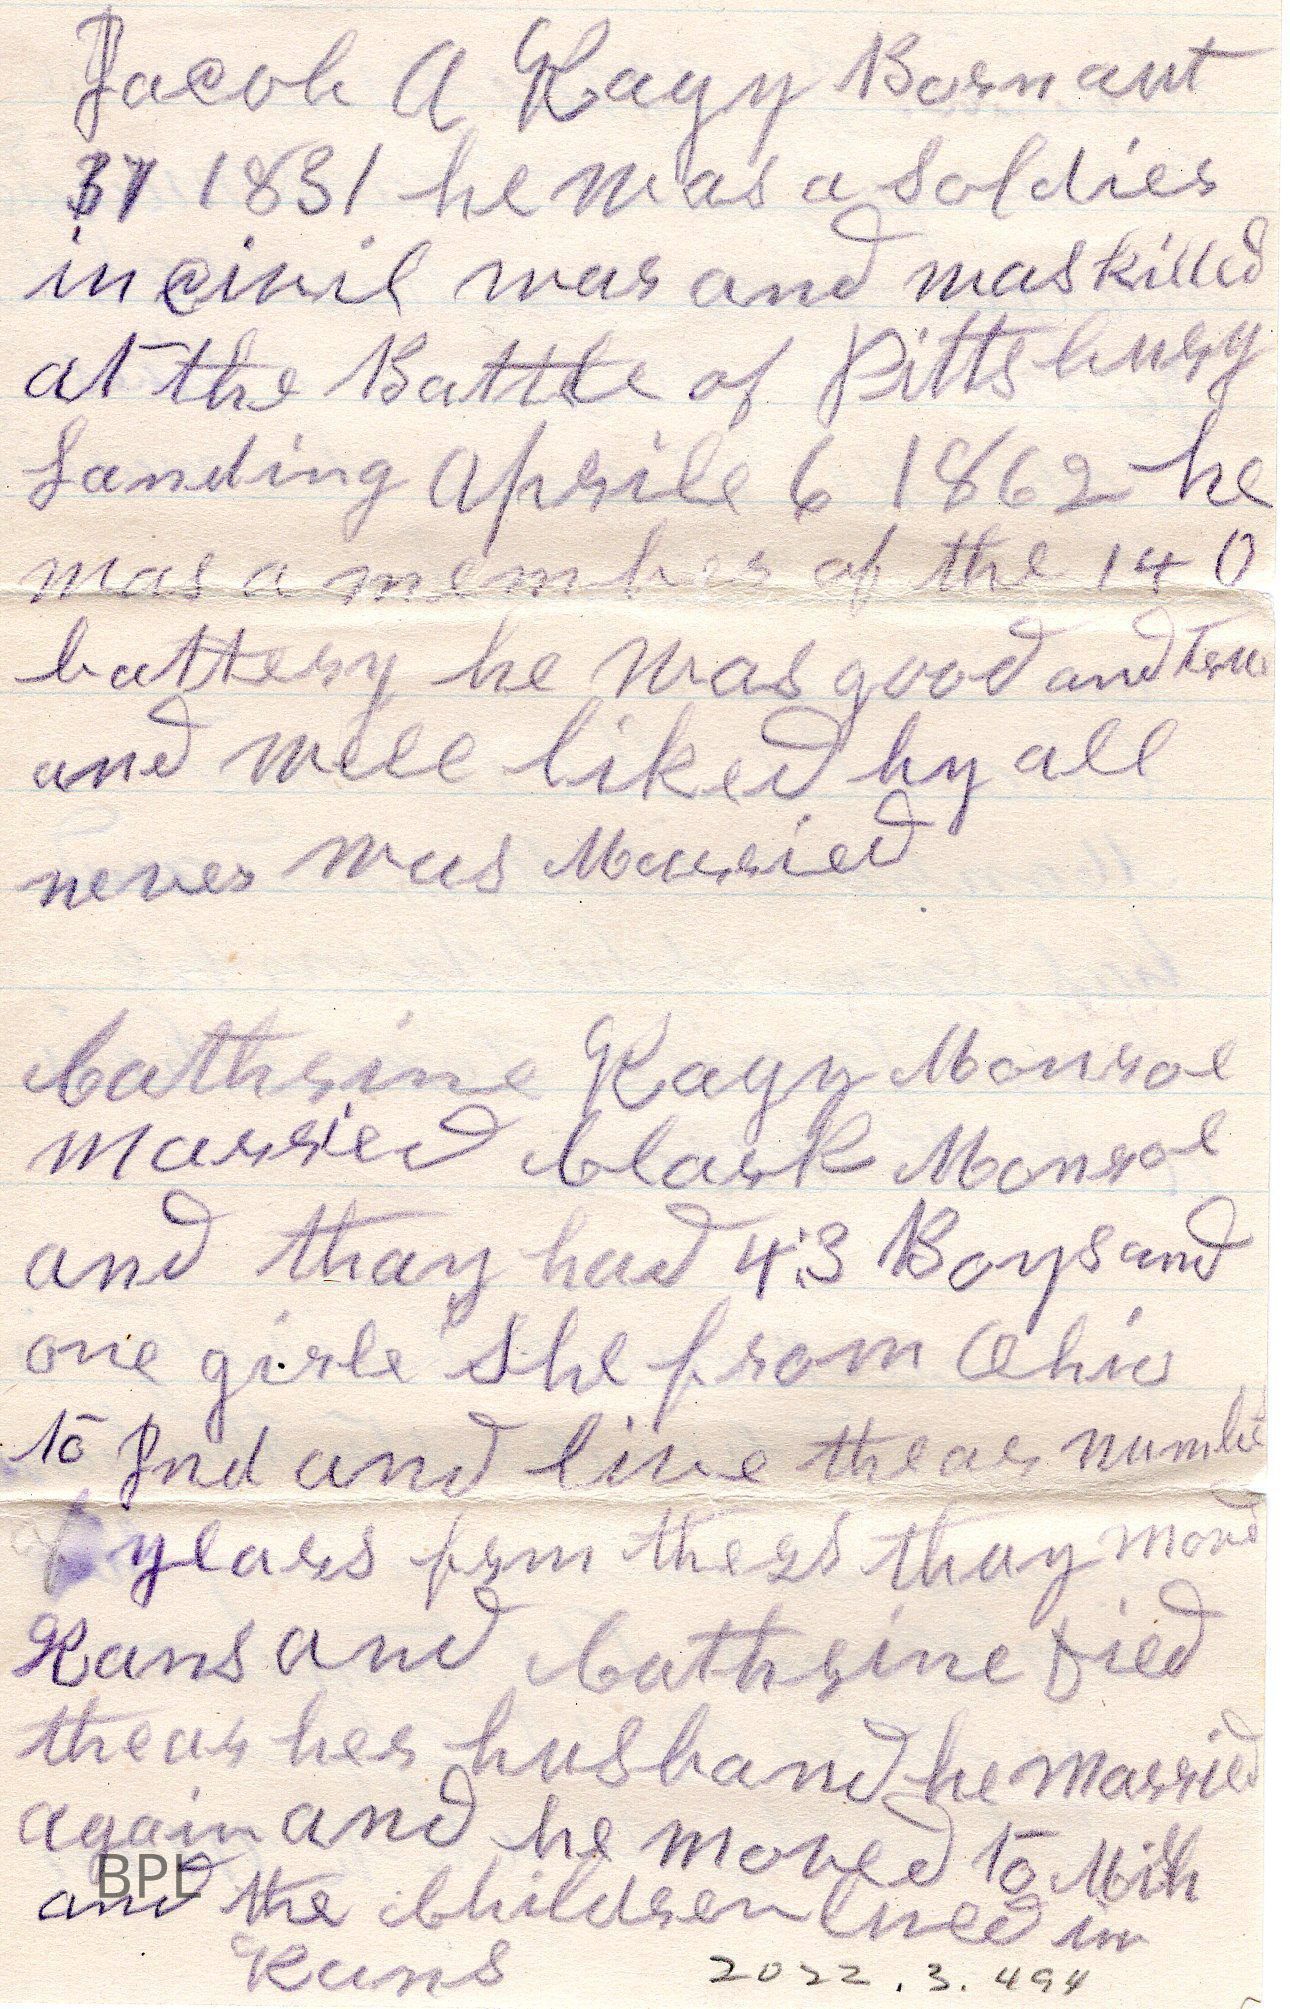 Jacob A Kagy Born aut
31 1831 he was a Soldier
in civil war and was killed
at the Battle of Pittsburg
Landing Aprile 6 1862 he
was a member of the 14 O
battery he was good and true
and well liked by all
never was Married
Cathrine Kagy Monroe
married Clark Monroe
and thay had 4:3 Boys and
one girle she from Ohio
to Ind and live thear number
of years frm there thay moved
Kans and Cathrine Died
thear her husband he married
again and he moved to Mich
and the Children lived in
Kans
BPL
2022.3.494